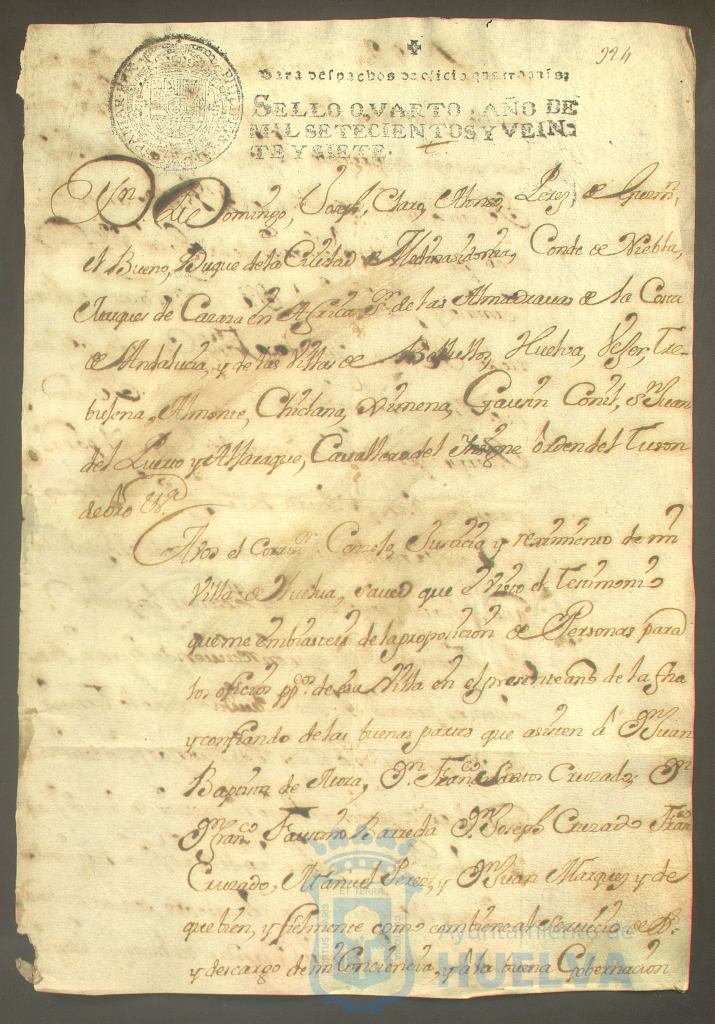 924
Para despachos de oficio quatro mrs.
SELLO QVARTO, AÑO DE
MIL SETECIENTOS Y VEIN-
TE Y SIETE.
Dn. Domingo, Joseph, Claro, Alonso, Perez, de Guzmn,
el Bueno, Duque de la Ciudad de Medinasidonia, Conde de Niebla,
Marques de Cazaza en Africa, Sr. de las Almadravas de la Costa
de Andalucia, y de las Villas de Huelva, Vejer, Tre-
bujena, Almonte, Chiclana, Ximena, Gausin, Conil, Sn. Juan
del Puerto y Alfaraque, Cavallero del Insigne Orden del Tuson
de Oro &a
A Vos el Concejo, Justicia y reximiento de mi
Villa de Huelva, saved que e Visto el testimonio
que me embiasteis de la proposicion de Personas para
los oficios pp.cos de esa Villa en el presente año de la fha
y confiando de las buenas partes que asisten a Dn. Juan
Baptista de Mora, Dn. Franco Santos Cruzado, Dn
Franco Faustino Barreda Dn. Joseph Cruzado Franco
Cruzado, Manuel Perez, y Dn. Juan Marquez y de
que bien, y fielmente como combiene al servicio de
y descargo de mi Conciencia, y a la buena Gobernacion
Ayuntamiento de
HUELVA